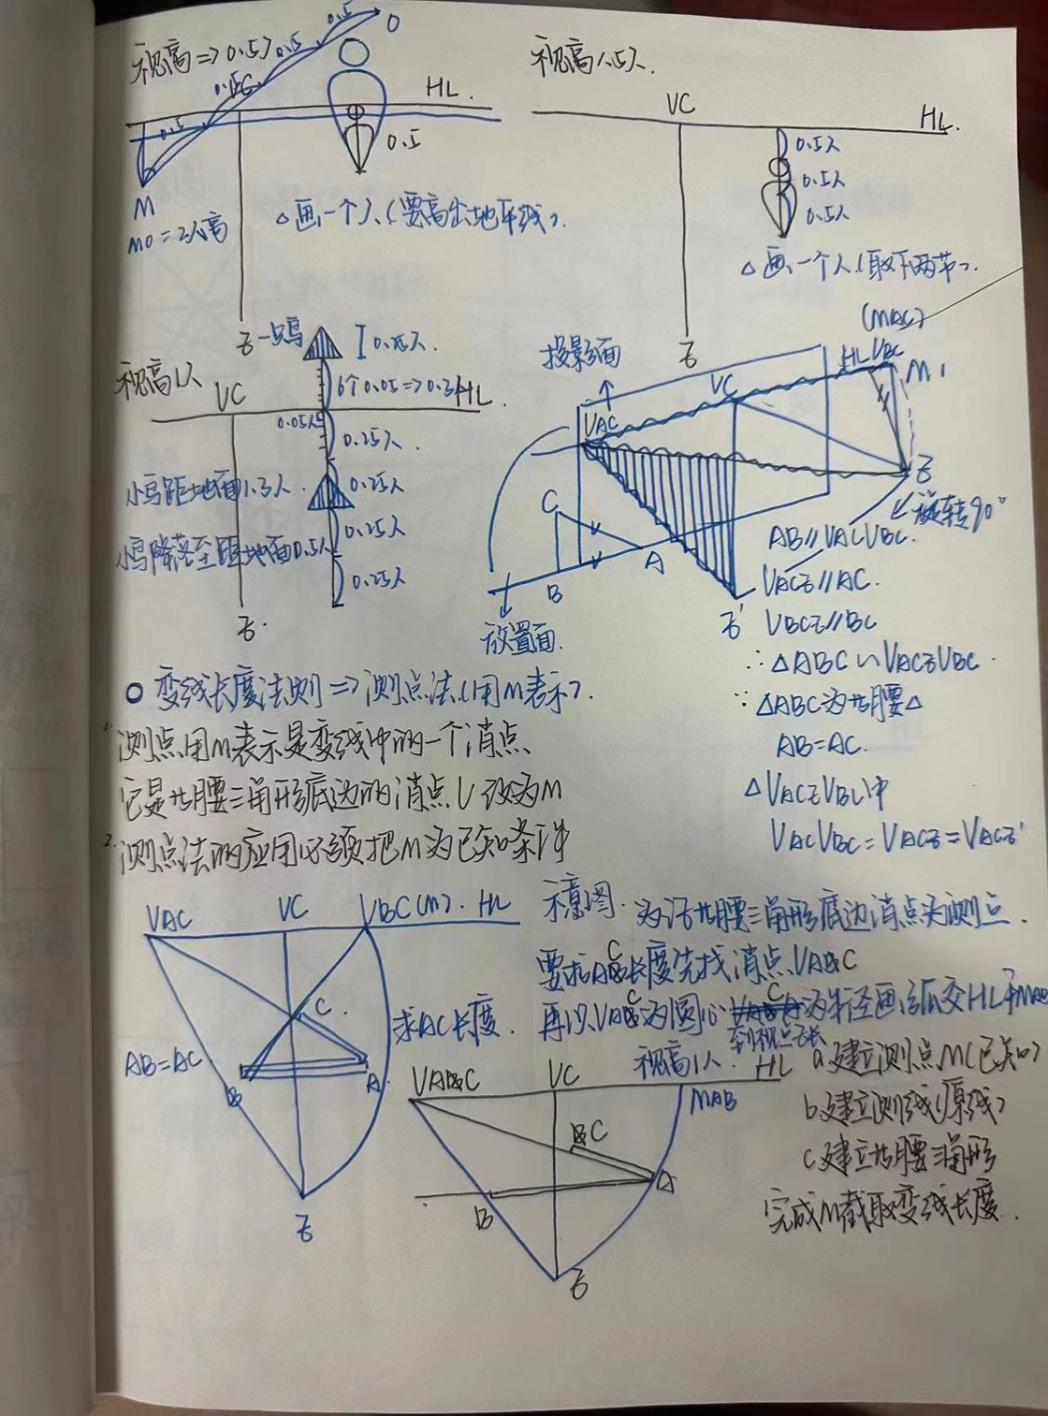 视高=>0.5人
0.5
0.5
0.5
0.5
O
HL.
0.5
M
MO=2人高
△画一个人(要高出地平线).
视高1.5人.
VC
HL.
0.5人
0.5人
0.5人
△画一个人(取下两节).
一只鸟
I 0.05人.
视高1人
VC
6个0.05=>0.3人
HL.
0.05人
0.25人.
小鸟距地面1.3人.
0.25人
小鸟降落至距地面0.5人
0.25人
0.25人
投影面
(MAC)
HL
VBC
M1
VC
VAC
C
旋转90°
A
B
放置面.
AB//VACVBC.
∴△ABC∽VAC
VBC.
∵△ABC为等腰△
AB=AC.
变线长度法则=>测点法(用M表示).
1.测点用M表示是变线中的一个消点
它是等腰三角形底边的消点V改为M
2.测点法的应用必须把M为已知条件
VAC
VC
VBC(M).
HL
C
AB=AC
B
A
求AC长度.
示意图. 为活等腰三角形底边消点为测点.
要求AC长度先找消点VAC
再以VAC为圆心
为半径画弧交HL于MAB
到视点之长
视高1人.
HL
VC
MAB
C
A
B
a建立测点M(已知)
b建立测线(原线)
c建立等腰三角形
完成M截取变线长度.